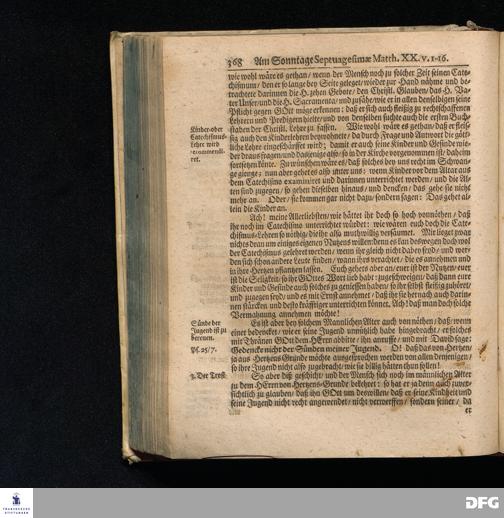 368 Am Sonntage Septuagesimæ Matth. XX. v. 1-16.
wie wohl wäre es gethan / wenn der Mensch noch zu solcher Zeit seinen Cate-
chismum / den er so lange bey Seite geleget / wieder zur Hand nähme und be-
trachtete darinnen die H. zehen Gebote / den Christl. Glauben / das H. Va-
ter Unser / und die H. Sacramenta / und zusähe / wie er in allen denselbigen seine
Pflicht gegen GOtt möge erkennen: daß er sich auch fleißig zu rechtschaffenen
Lehrern und Predigern hielte / und von denselben suchte auch die ersten Buch-
Kinder-oder
Catechismus-
Lehre wird
recommendi-
ret.
staben der Christl. Lehre zu fassen. Wie wohl wäre es gethan / daß er fleis-
sig auch den Kinderlehren beywohnete / da durch Frage und Antwort die gött-
liche Lehre eingeschärffet wird; damit er auch seine Kinder und Gesinde wie-
der draus fragen / und dasjenige also / so in der Kirche vorgenommen ist / daheim
fortsetzen könte. Zu wünschen wäre es / daß solches bey uns recht im Schwan-
ge gienge; nun aber gehet es also unter uns: wenn Kinder vor dem Altar aus
dem Catechismo examiniret und darinnen unterrichtet werden / und die Al-
ten sind zugegen / so gehen dieselben hinaus / und dencken / das gehe sie nicht
mehr an. Oder / sie kommen gar nicht dazu / sondern sagen: Das gehet al-
lein die Kinder an.
Ach! meine Allerliebsten / wie hättet ihr doch so hoch vonnöthen / daß
ihr noch im Catechismo unterrichtet würdet: wie wären euch doch die Cate-
chismus-Lehren so nöthig / die ihr also muthwillig versäumet. Mir lieget zwar
nichts dran um einiges eigenen Nutzens willen: denn es kan deswegen doch wol
der Catechismus gelehret werden / wenn ihr gleich nicht dabey seyd / und wer-
den sich schon andere Leute finden / wann ihrs verachtet / die es annehmen und
in ihre Hertzen pflantzen lassen. Euch gehets aber an / euer ist der Nutzen / euer
ist die Seligkeit / so ihr GOttes Wort lieb habt: zugeschweigen / daß dann eure
Kinder und Gesinde auch solches zu geniessen haben / so ihr selbst fleißig zuhöret /
und zugegen seyd / und es mit Ernst annehmet / daß ihr sie hernach auch darin-
nen stärcken und desto kräfftiger unterrichten könnet. Ach! daß man doch solche
Vermahnung annehmen möchte!
Sünde der
Jugend ist zu
bereuen.
Ps. 25 / 7.
Es ist aber bey solchem Männlichen Alter auch von nöthen / daß / wenn
einer bedencket / wie er seine Jugend unnützlich habe hingebracht / er solches
mit Thränen GOtt dem HErrn abbitte / ihn anruffe / und mit David sage:
Gedencke nicht der Sünden meiner Jugend. O! daß das von Hertzen /
ja aus Hertzens Grunde möchte ausgesprochen werden von allen denjenigen /
so ihre Jugend nicht also zugebracht / wie sie billig hätten thun sollen!
3. Der Trost.
So aber diß geschicht / und der Mensch sich noch im männlichen Alter
zu dem HErrn von Hertzens-Grunde bekehret: so hat er ja denn auch zuver-
sichtlich zu glauben / daß ihn GOtt um deswillen / daß er seine Kindheit und
seine Jugend nicht recht angewendet / nicht verwerffen / sondern seiner / da
er
FRANCKESCHE
STIFTUNGEN
DFG